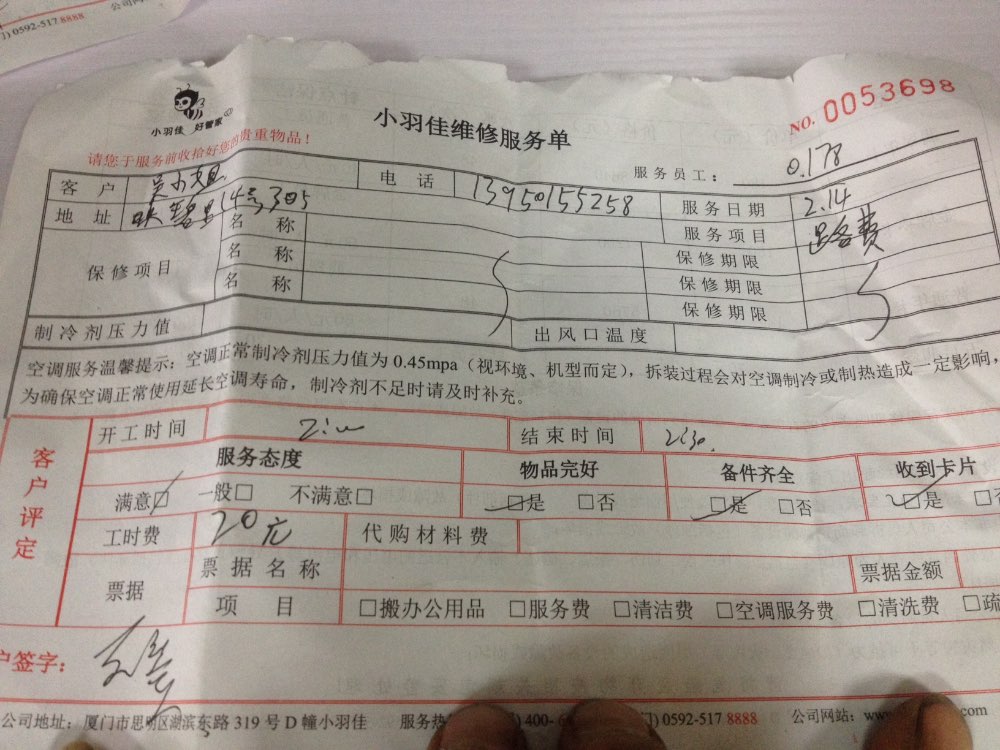 公司网
0592-517 8888
小羽佳 好管家
小羽佳维修服务单
NO. 0053698
请您于服务前收拾好您的贵重物品!
服务员工: 0.178
客 户 吴小姐 电 话 13950155258 服务日期 2.14
地 址 14号305 服务项目
保修项目 名 称 保修期限
名 称 保修期限
名 称 保修期限
制冷剂压力值 出风口温度
空调服务温馨提示:空调正常制冷剂压力值为 0.45mpa(视环境、机型而定),拆装过程会对空调制冷或制热造成一定影响,
为确保空调正常使用延长空调寿命,制冷剂不足时请及时补充。
客户评定
开工时间 结束时间
服务态度 物品完好 备件齐全 收到卡片
满意□ 一般□ 不满意□ □是 □否 □是 □否 □是 □否
工时费 20元 代购材料费
票据 票据名称 票据金额
项 目 □搬办公用品 □服务费 □清洁费 □空调服务费 □清洗费 □疏
户签字:
公司地址:厦门市思明区湖滨东路 319 号 D 幢小羽佳 服务热 400- 0592-517 8888 公司网站:www .com